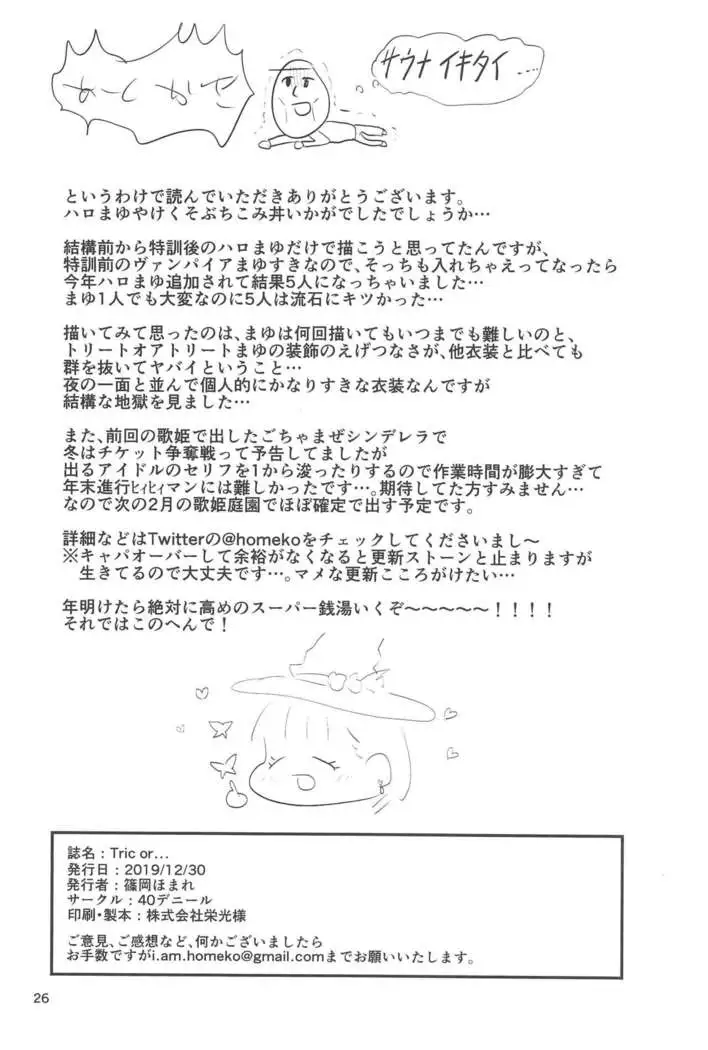 あーとがき
サウナイキタイ....
というわけで読んでいただきありがとうございます。
ハロまゆやけくそぶちこみ丼いかがでしたでしょうか…
結構前から特訓後のハロまゆだけで描こうと思ってたんですが、
特訓前のヴァンパイアまゆすきなので、そっちも入れちゃえってなったら
今年ハロまゆ追加されて結果5人になっちゃいました…
まゆ1人でも大変なのに5人は流石にキツかった…
描いてみて思ったのは、まゆは何回描いてもいつまでも難しいのと、
トリートオアトリートまゆの装飾のえげつなさが、他衣装と比べても
群を抜いてヤバイということ…
夜の一面と並んで個人的にかなりすきな衣装なんですが
結構な地獄を見ました…
また、前回の歌姫で出したごちゃまぜシンデレラで
冬はチケット争奪戦って予告してましたが
出るアイドルのセリフを1から浚ったりするので作業時間が膨大すぎて
年末進行ﾋｨﾋｨマンには難しかったです…。期待してた方すみません…
なので次の2月の歌姫庭園でほぼ確定で出す予定です。
詳細などはTwitterの@homekoをチェックしてくださいまし〜
※キャパオーバーして余裕がなくなると更新ストーンと止まりますが
生きてるので大丈夫です…。マメな更新こころがけたい…
年明けたら絶対に高めのスーパー銭湯いくぞ〜〜〜〜〜！！！！
それではこのへんで！
誌名：Tric or…
発行日：2019/12/30
発行者：篠岡ほまれ
サークル：40デニール
印刷・製本：株式会社栄光様
ご意見、ご感想など、何かございましたら
お手数ですがi.am.homeko@gmail.comまでお願いいたします。
26